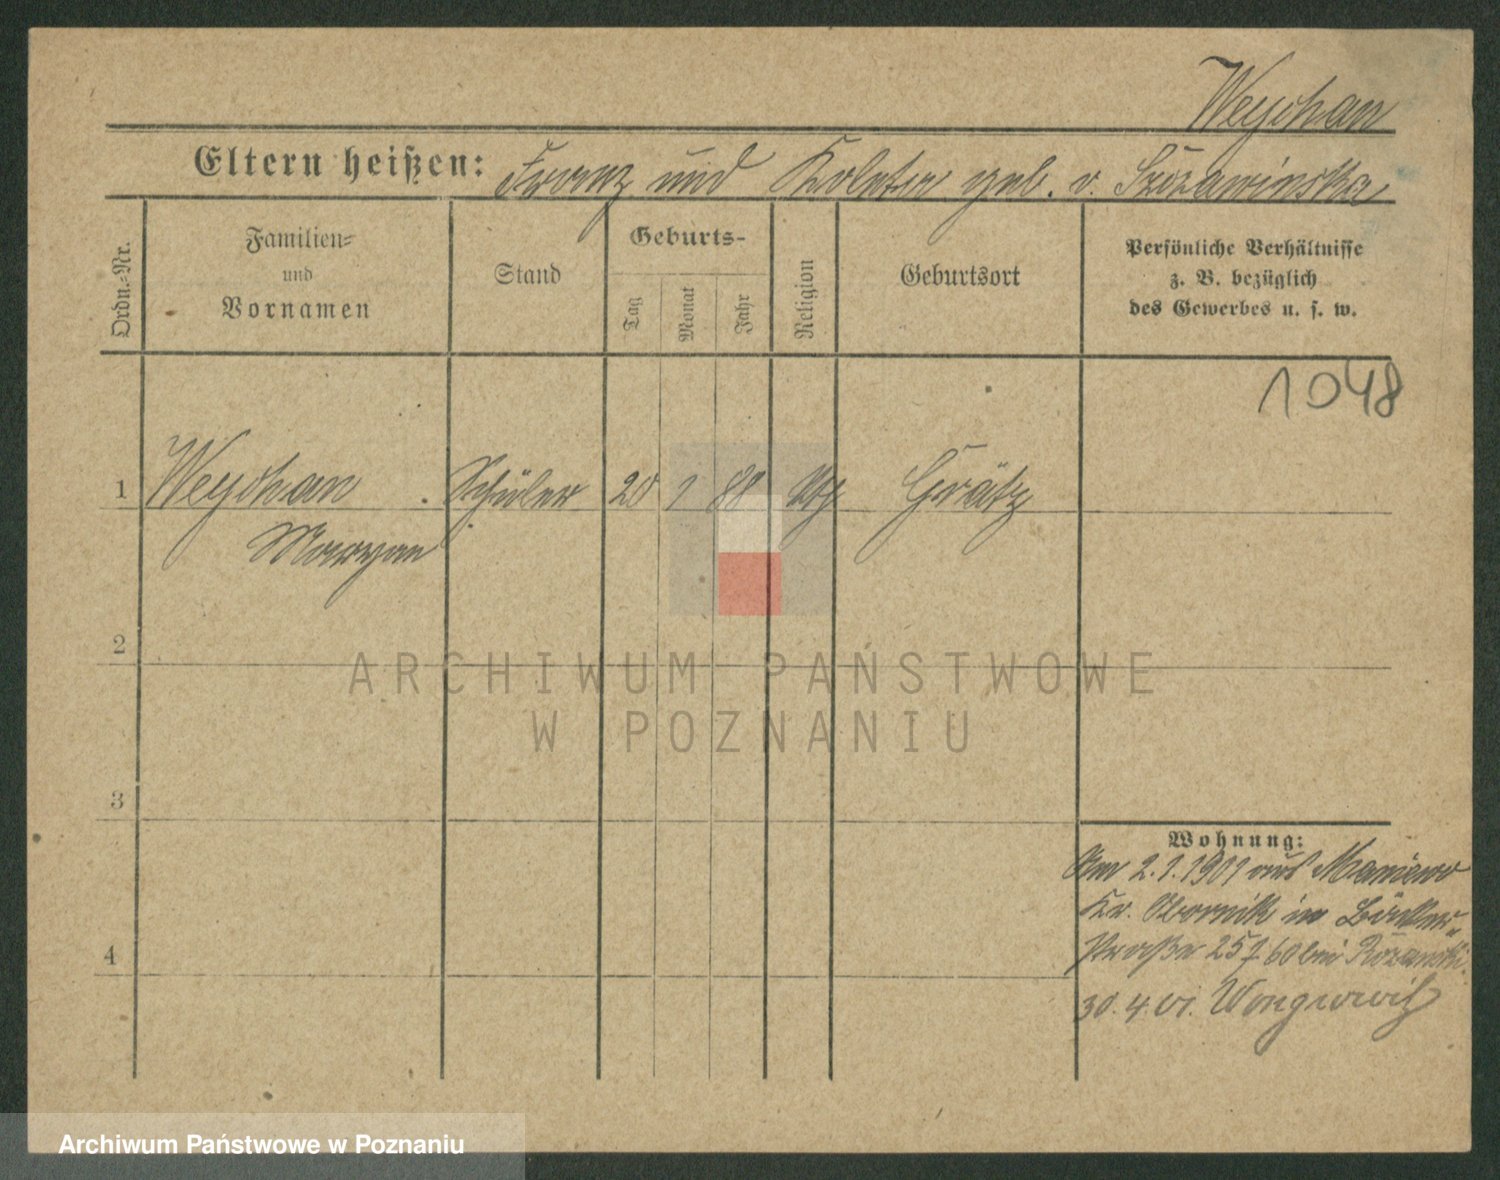 Weychan
Eltern heißen: Franz und geb. v.
Ordn.-Nr.
Familien-
und
Vornamen
Stand
Geburts-
Tag
Monat
Jahr
Religion
Geburtsort
Persönliche Verhältnisse
z. B. bezüglich
des Gewerbes u. s. w.
1048
1 Weychan Schüler 20 1 88 Grätz
Maryan
2
3
4
ARCHIWUM PAŃSTWOWE
W POZNANIU
Wohnung:
Am 2.1.1901 aus Maniewo
Kr. Obornik in Bäcker-
straße 25 bei
30. 4. 01. Wongrowitz
Archiwum Państwowe w Poznaniu